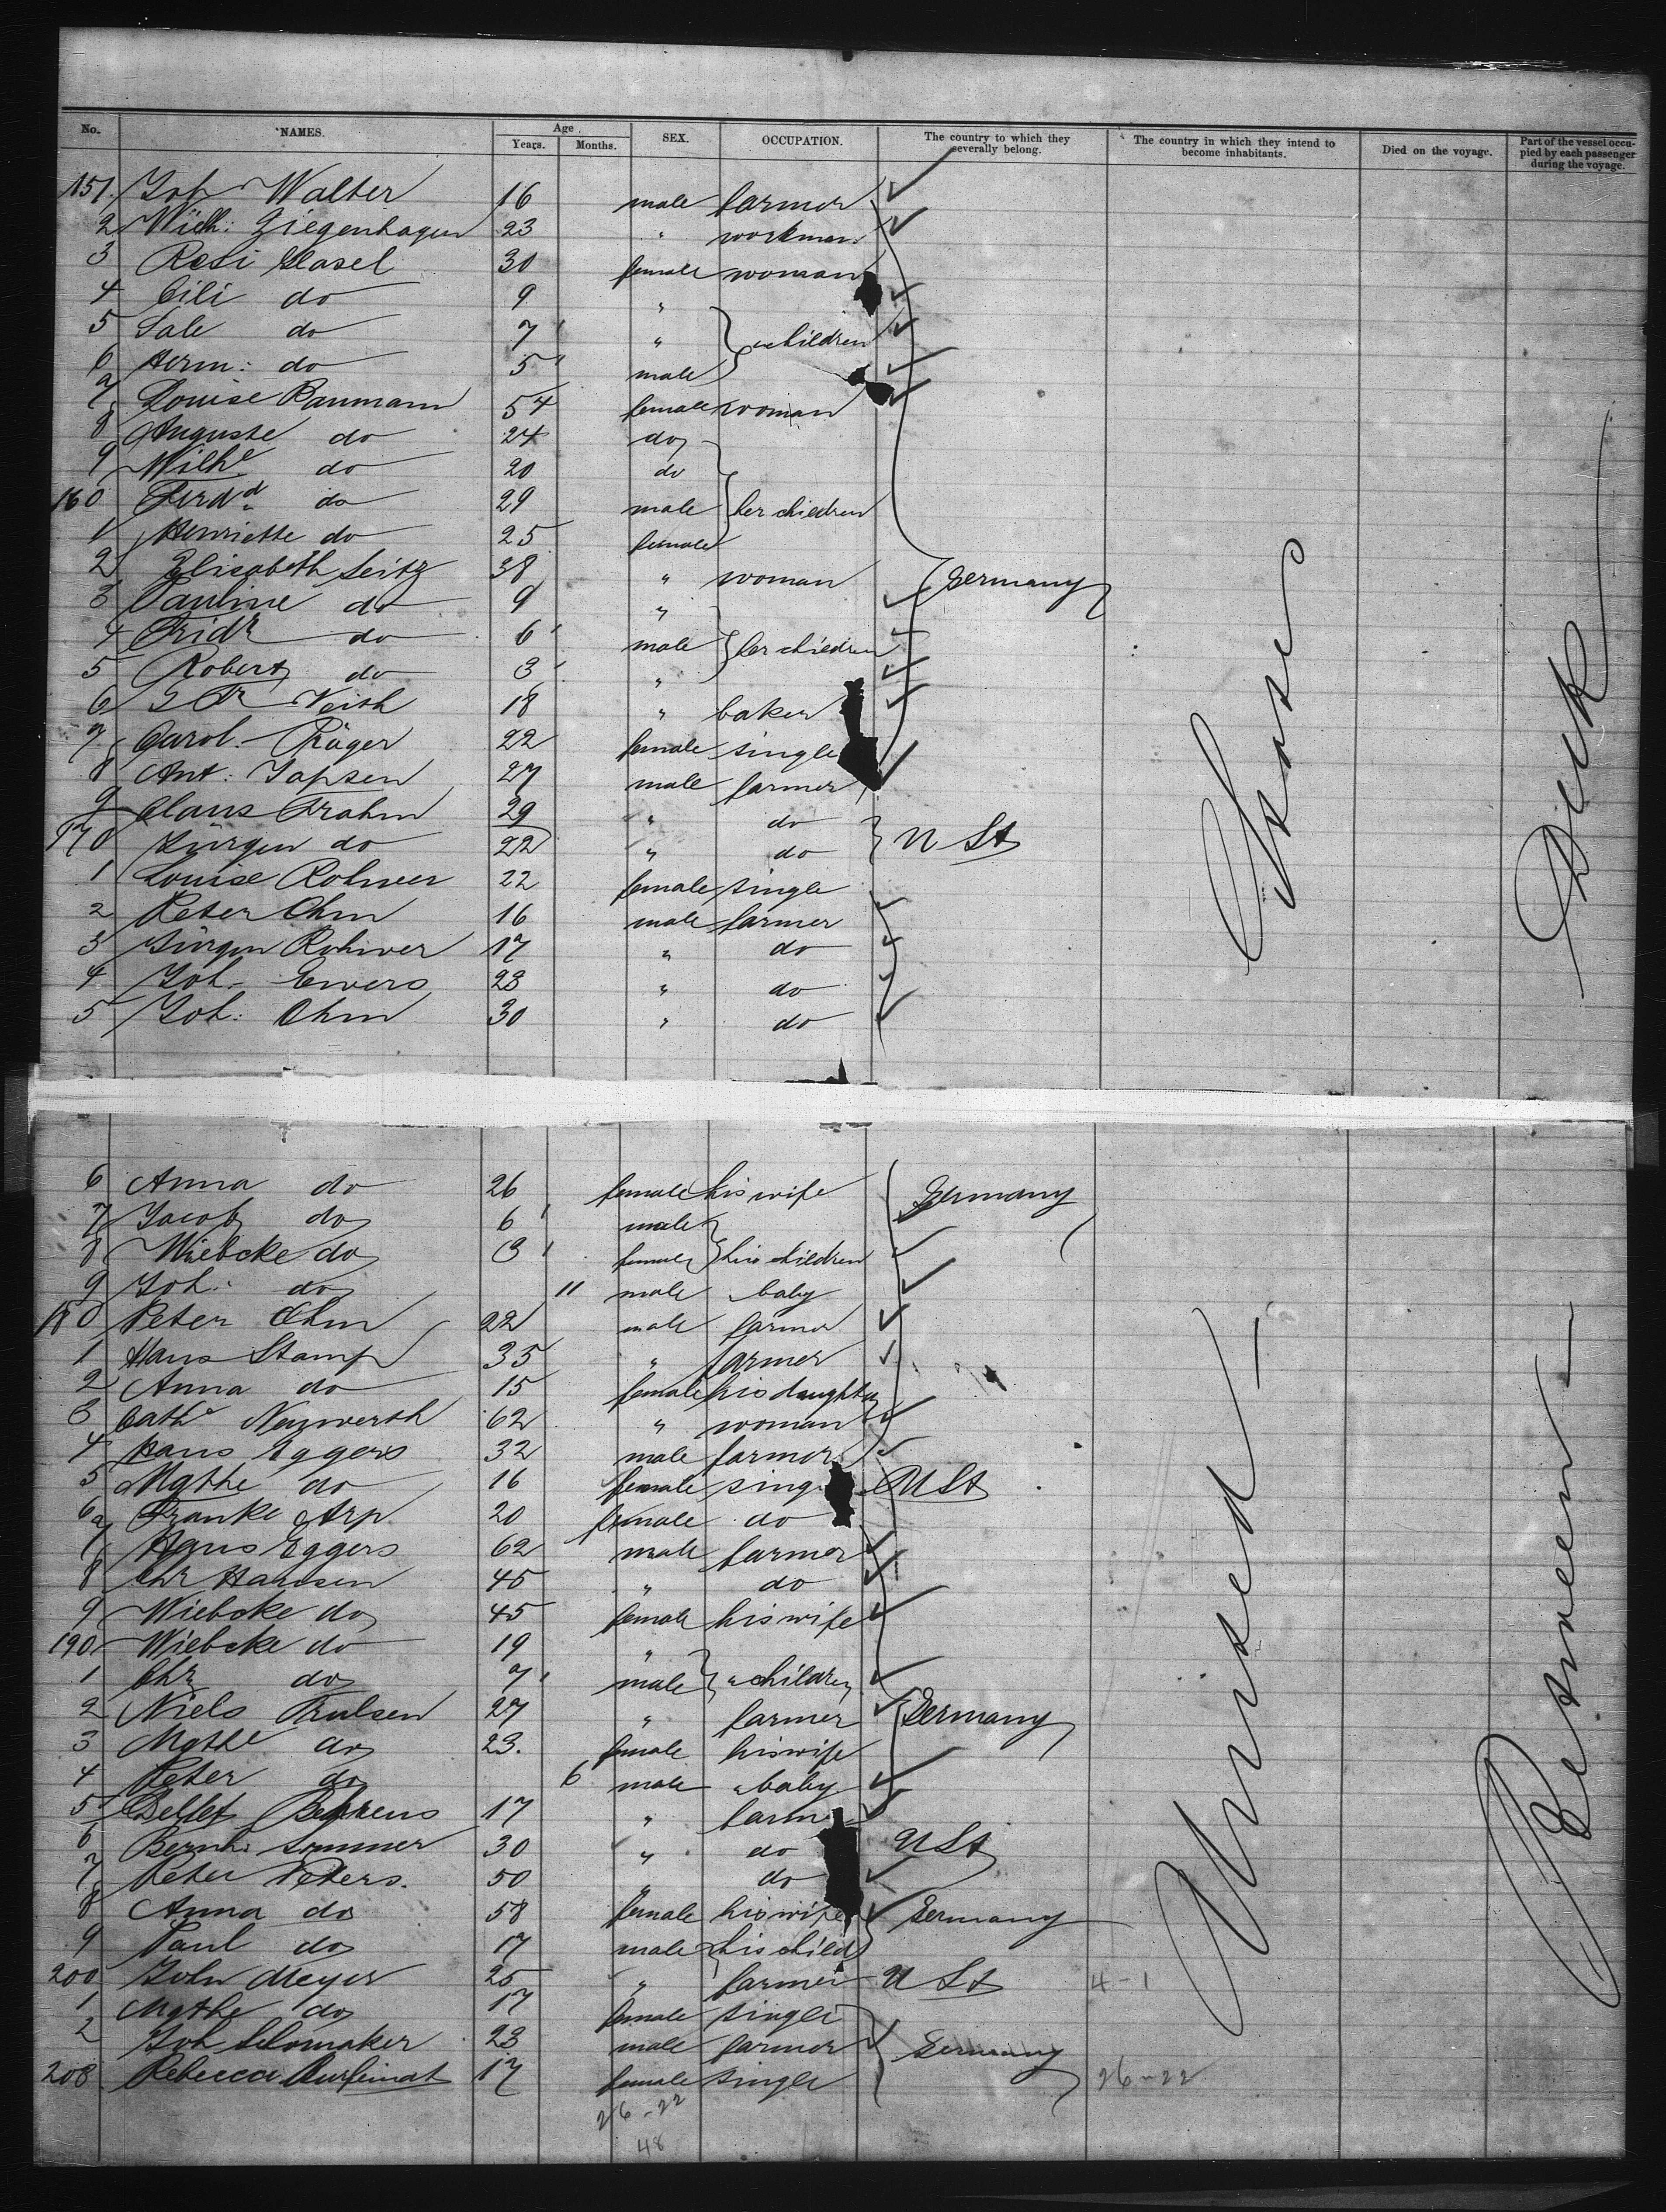 No. NAMES. Age Years. Months. SEX. OCCUPATION. The country to which they severally belong. The country in which they intend to become inhabitants. Died on the voyage. Part of the vessel occupied by each passenger during the voyage.
151. Joh Walter 16 male farmer
2 Wilh: Ziegenhagen 23 " workman
3 Resi Glasel 30 female woman
4 Cili do 9 "
5 Sale do 7 " " children
6 Herm: do 5 male
7 Louise Baumann 54 female woman
8 Auguste do 24 do
9 Wilhe do 20 do
160 Ferdd do 29 male her children
1 Henriette do 25 female
2 Elisabeth Seitz 38 " woman Germany
3 Pauline do 9 "
4 Fridr do 6 male her children
5 Robert do 3 "
6 Veith 18 " baker
7 Carol. Präger 22 female single
8 Ant: Japsen 27 male farmer
9 Claus Frahm 29 " do
170 Jürgen do 22 " do U St
1 Louise Rohwer 22 female single
2 Peter Ohm 16 male farmer
3 Jürgen Rohwer 17 " do
4 Joh. Ewers 23 " do
5 Joh: Ohm 30 " do
States
Deck
6 Anna do 26 female his wife Germany
7 Jacob do 6 male
8 Wiebcke do 3 female his children
9 Joh: do 11 male " baby
180 Peter Ohm 22 male farmer
1 Hans Stamp 35 " farmer
2 Anna do 15 female his daughter
3 Cathe 62 " woman
4 Hans Eggers 32 male farmer
5 Mgthe do 16 female sing U St
6 Franke Arp 20 female do
7 Hans Eggers 62 male farmer
8 Chr Hansen 45 " do
9 Wiebcke do 45 female his wife
190 Wiebcke do 19 "
1 Chr do 7 male " children
2 Niels Trulsen 27 " farmer Germany
3 Mgthe do 23. female his wife
4 Peter do 6 male " baby
5 Detlef Behrens 17 " farm
6 Bernh: Sommer 30 " do U St
7 Peter Peters. 50 " do
8 Anna do 58 female his wife Germany
9 Paul do 17 male his child
200 John Meyer 25 " farmer U St 4-1
1 Mgthe do 17 female single
2 Joh 23 male farmer Germany
203 Rebecca 17 female single 26-22
26-22
48
United
Between